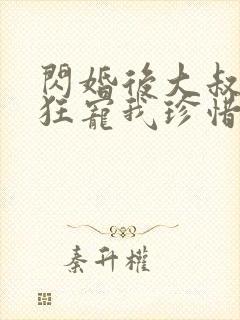 閃婚後大叔
狂寵我珍惜
秦升權